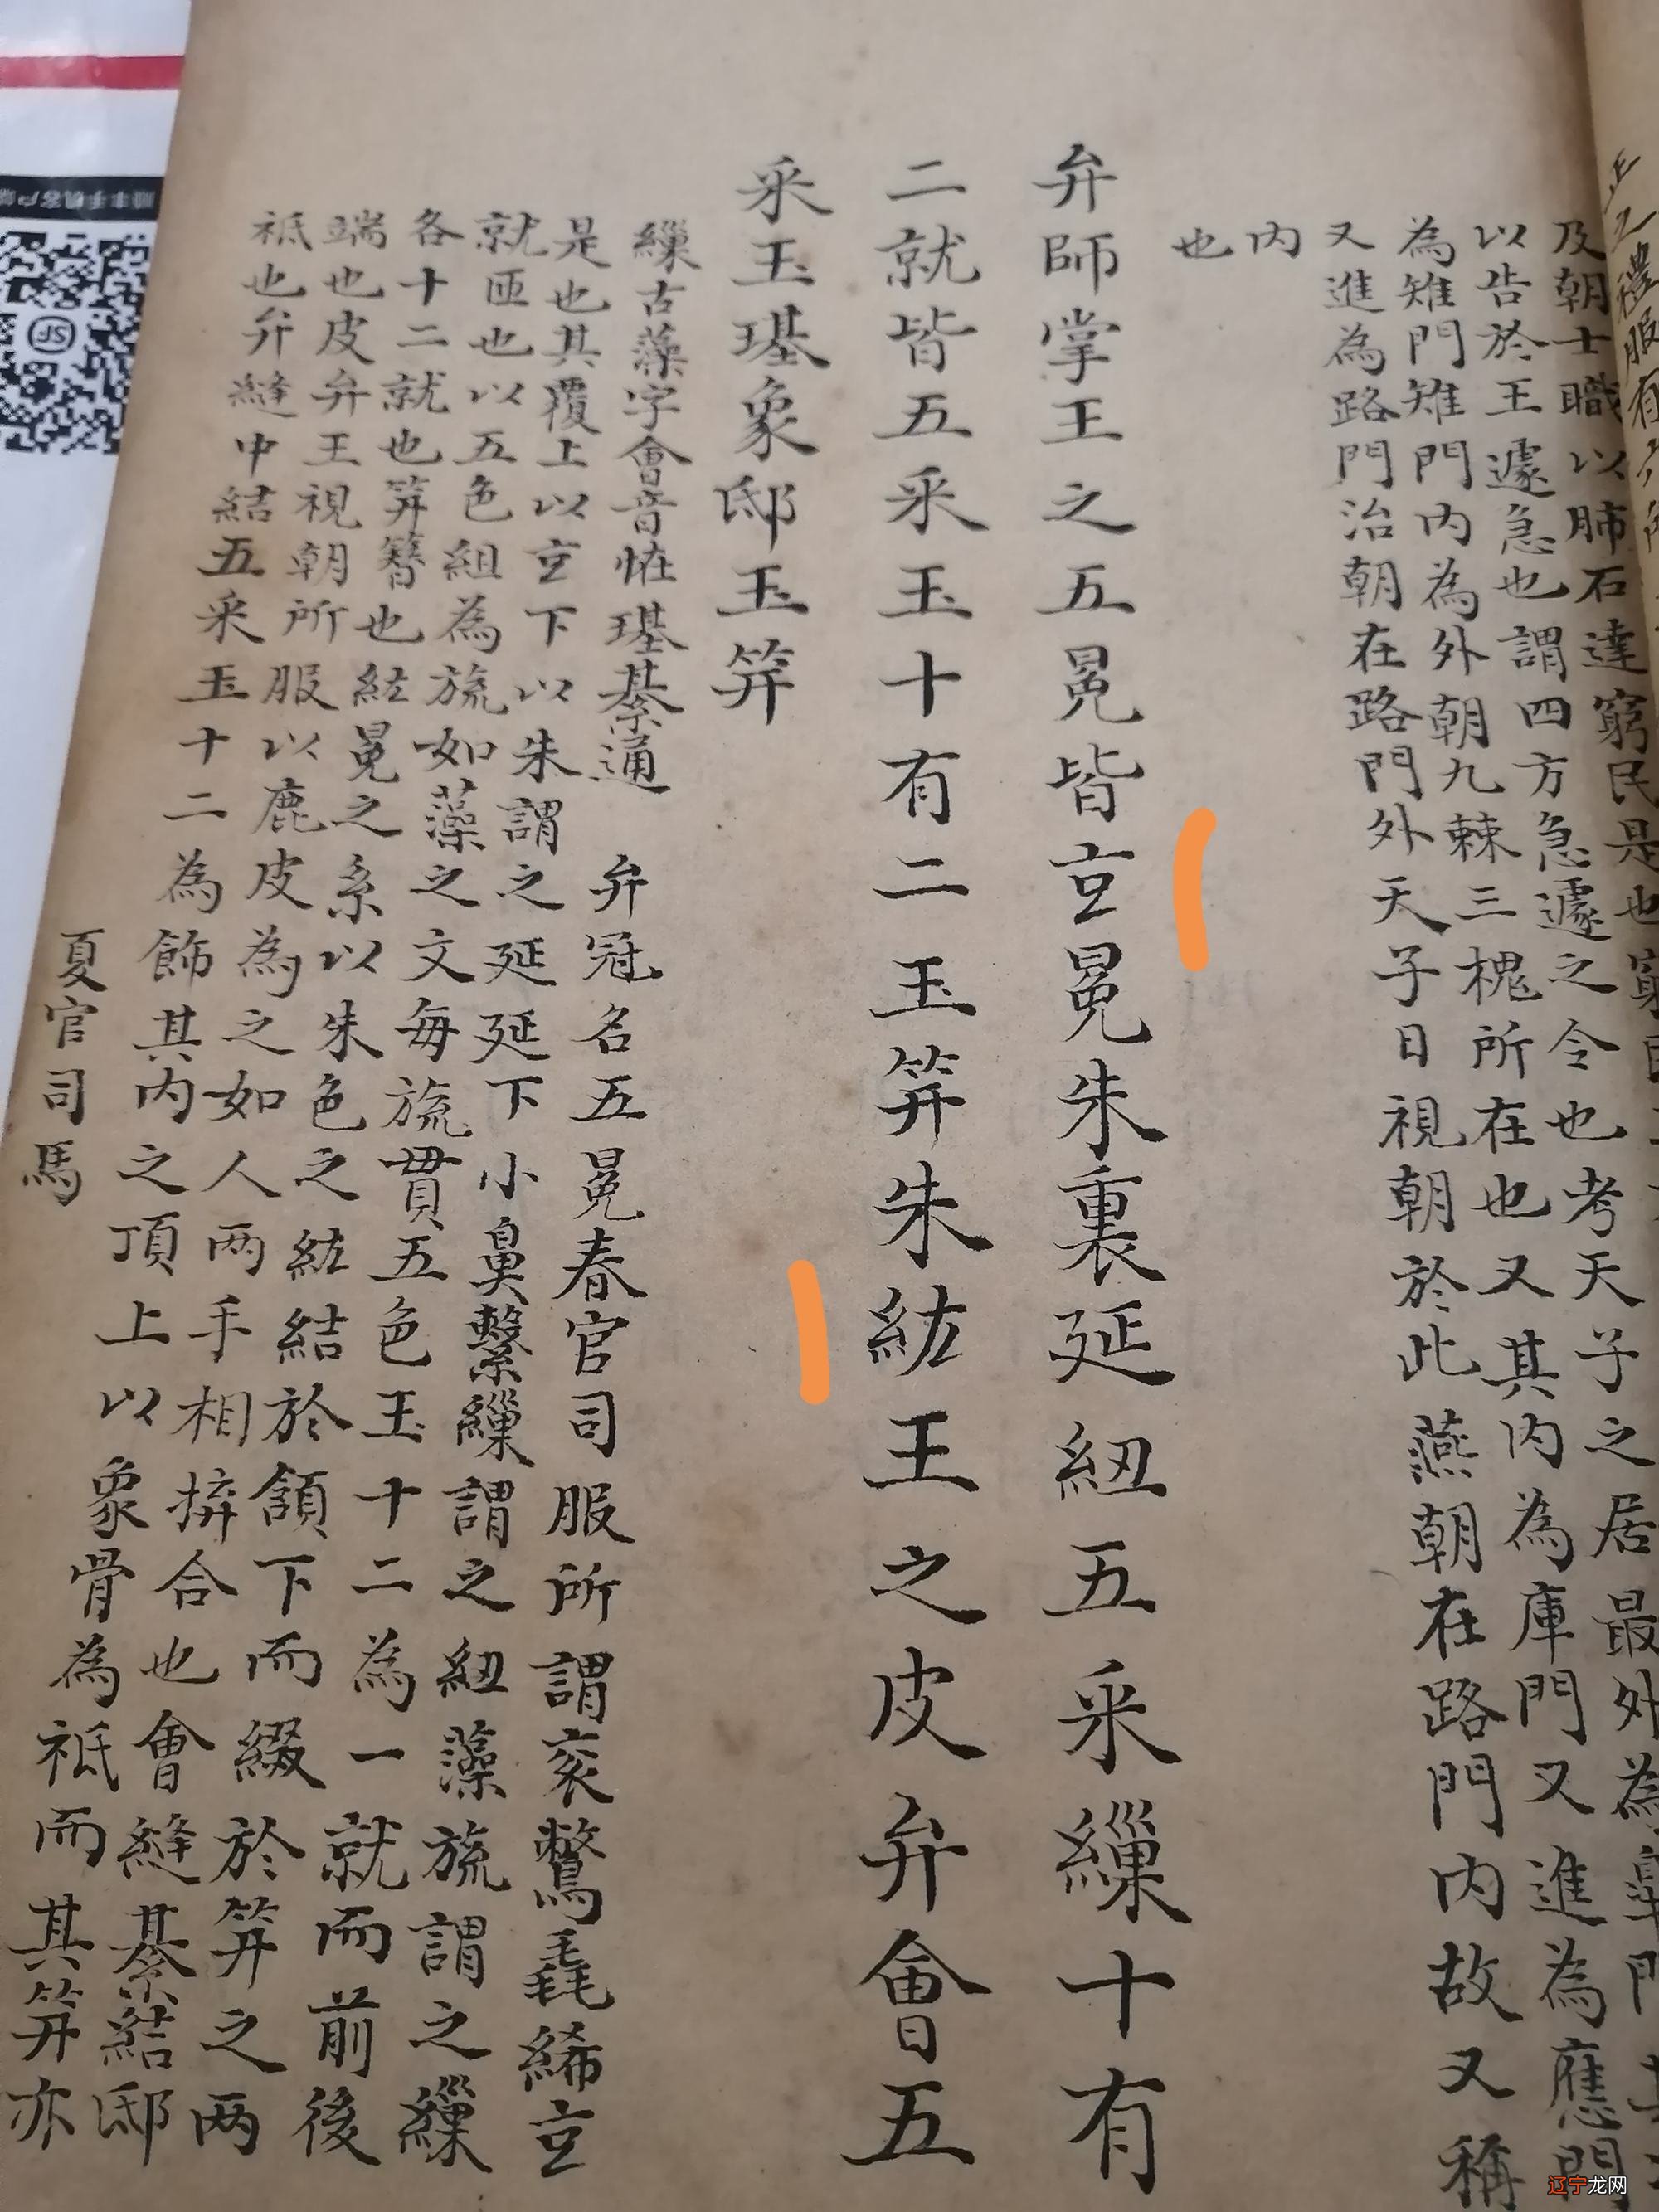 正之禮服有
及朝士職以肺石達窮民是也窮
以告於王遽急也謂四方急遽之令也考天子之居最外為皐門
為雉門雉門内為外朝九棘三槐所在也又其内為庫門又進為應門
又進為路門治朝在路門外天子日視朝於此燕朝在路門内故又稱
内
也
弁師掌王之五冕皆玄冕朱裏延紐五采繅十有
二就皆五采玉十有二玉笄朱紘王之皮弁會五
采玉璂象邸玉笄
繅古藻字會音恠璂綦通 弁冠名五冕春官司服所謂衮鷩毳絺玄
是也其覆上以玄下以朱謂之延延下小鼻繫繅謂之紐藻旒謂之繅
就匝也以五色組為旒如藻之文每旒貫五色玉十二為一就而前後
各十二就也笄簪也紘冕之系以朱色之紘結於頷下而綴於笄之两
端也皮弁王視朝所服以鹿皮為之如人两手相揜合也會縫綦結邸
祗也弁縫中結五采玉十二為飾其内之頂上以象骨為祗而其笄亦
夏官司馬
辽宁龙网